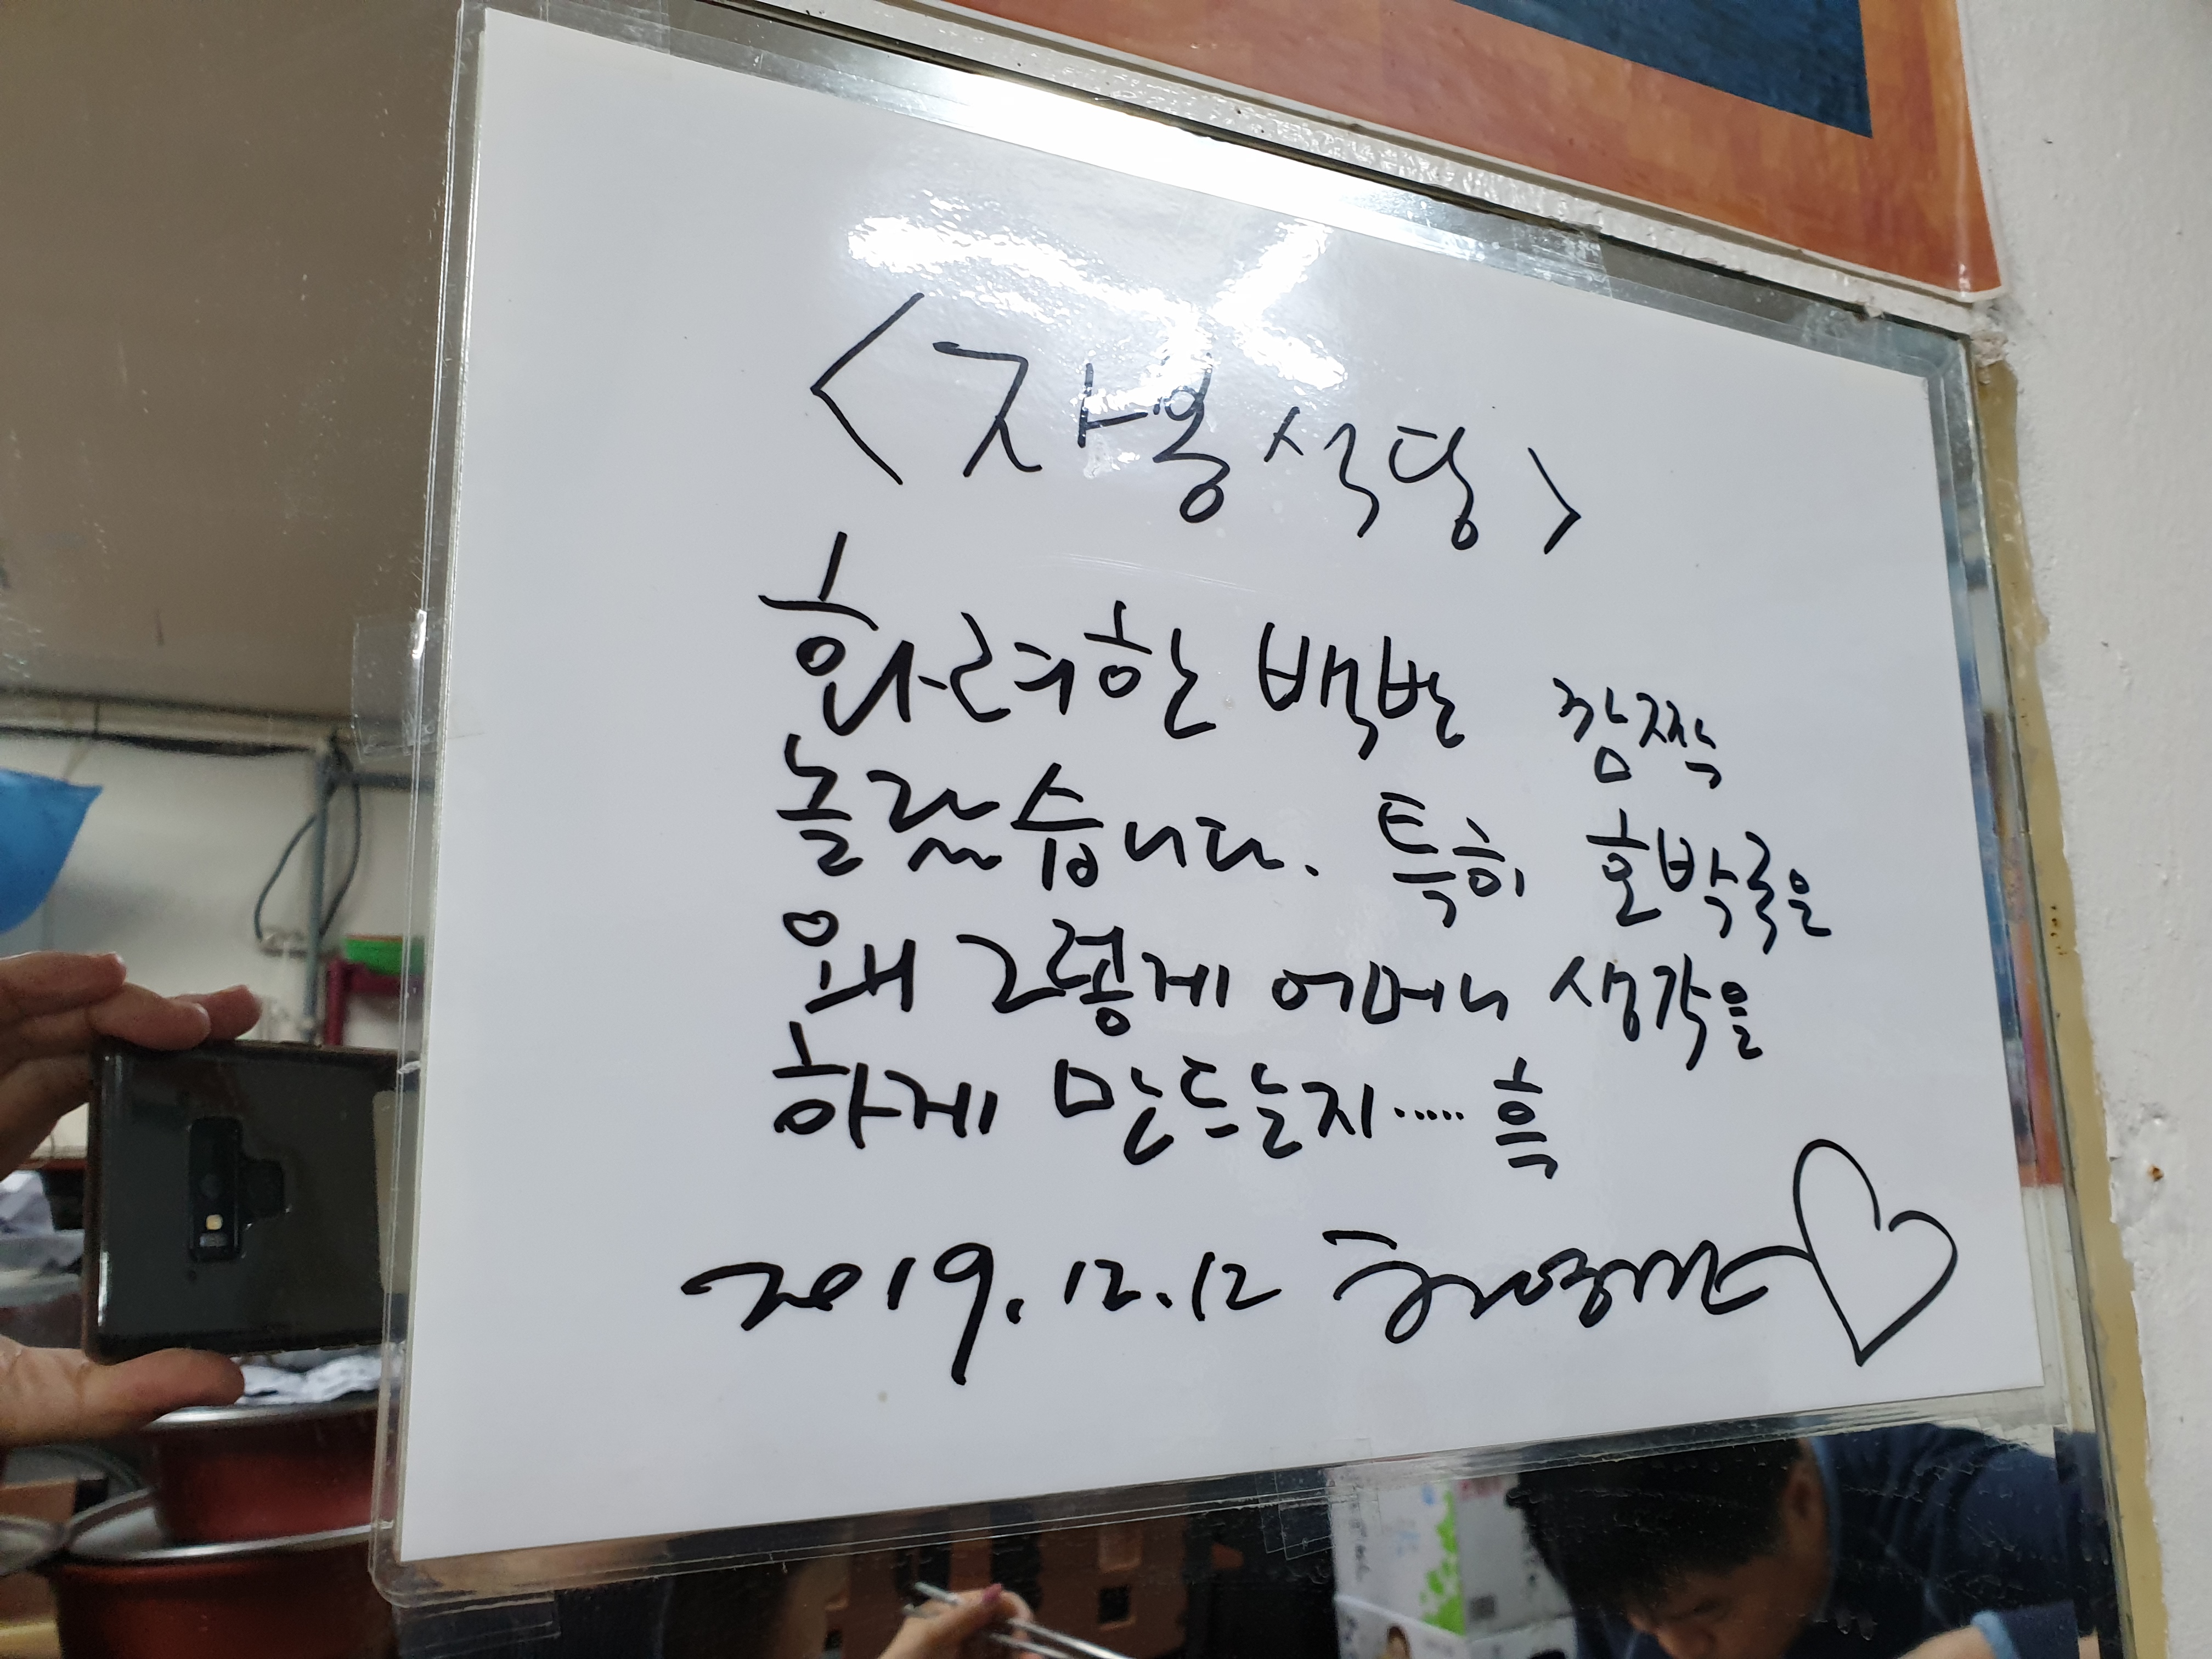 <자봉식당>
화려한 백반 깜짝
놀랐습니다. 특히 호박국은
왜 그렇게 어머니 생각을
하게 만드는지..... 흑
2019. 12. 12 허영만